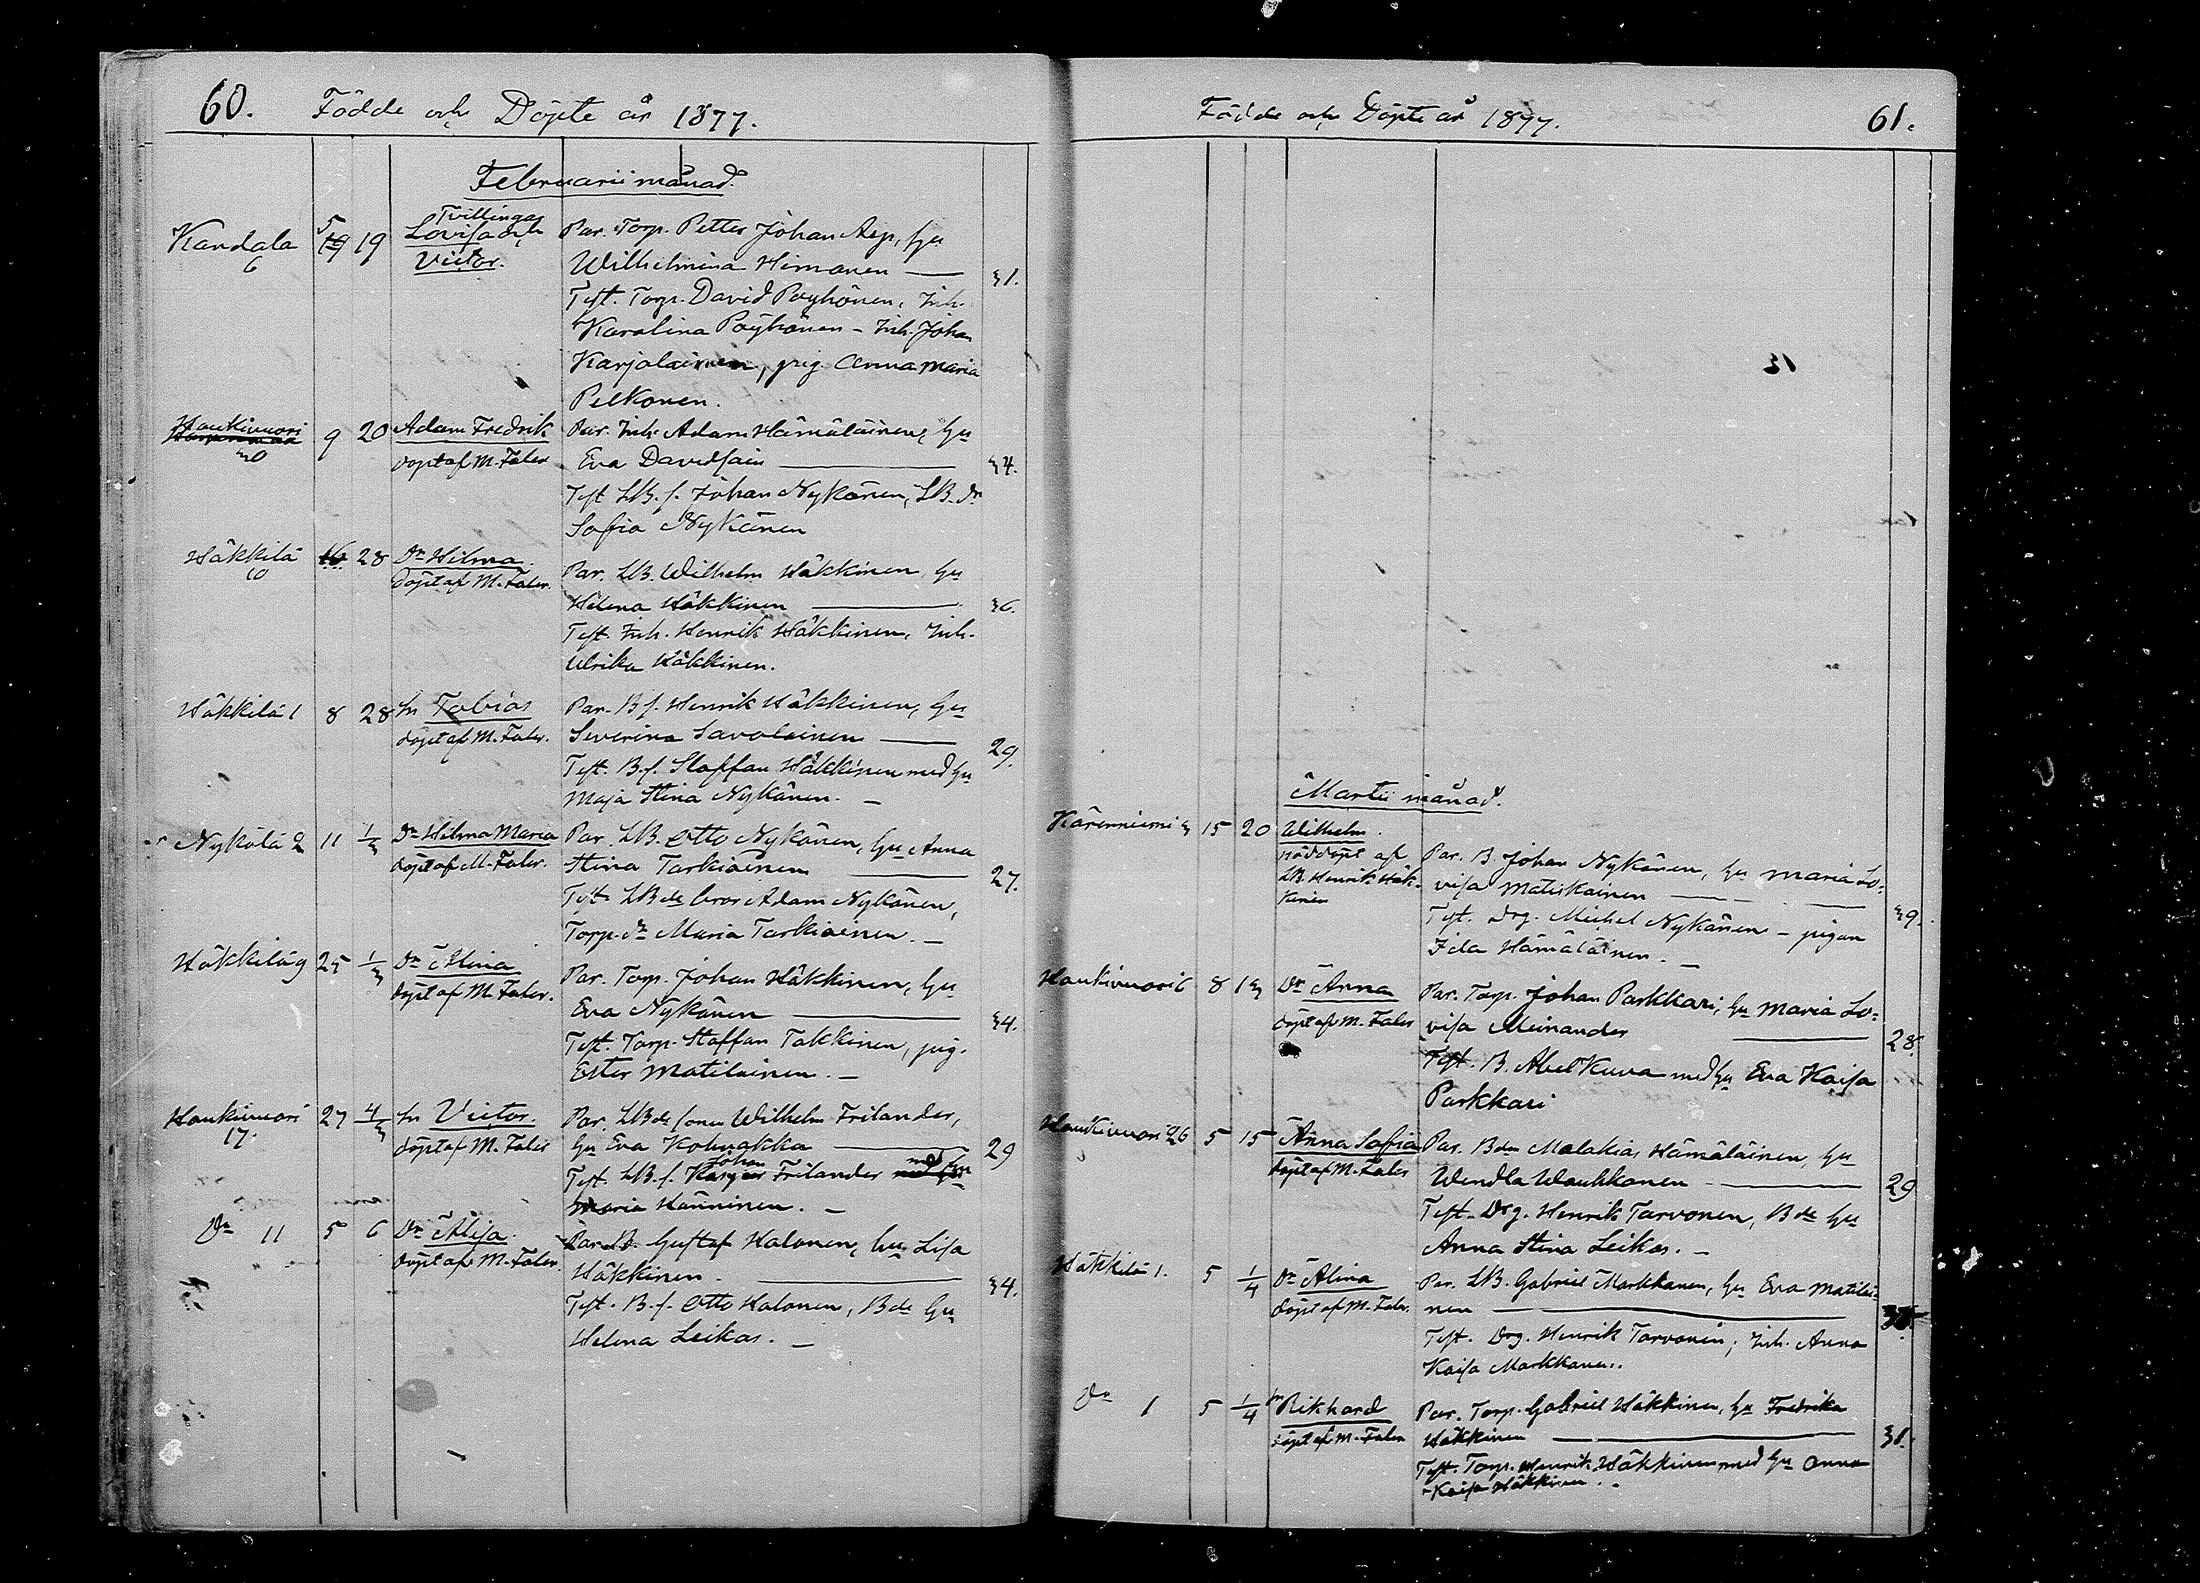 60. Födde och Döpte år 1877.
Februarii månad.
Kandala 6
5 19 19
Tvillingar
Lovisa och
Victor.
Par. Torp. Petter Johan Asp, hu
Wilhelmina Himanen — 31.
Test. Torp. David Pöyhönen, Inh.
Karolina Pöyhönen - Inh. Johan
Karjalainen, pig. Anna Maria
Pelkonen.
Haukivuori
9 20 Adam Fredrik
döpt af M. Faler
Par. Inh. Adam Hämäläinen, hu
Eva Davidsain — 34.
Test LB. s. Johan Nykänen, LB. dr
Sofia Nykänen
Häkkilä 10
16 28 Dr Hilma.
döpt af M. Faler.
Par. LB. Wilhelm Häkkinen, hu
Helena Häkkinen — 36.
Test. Inh. Henrik Häkkinen, Inh.
Ulrika Häkkinen.
Häkkilä 1 8 28 sn Tobias
döpt af M. Faler.
Par. B. s. Henrik Häkkinen, hu
Severina Savolainen — 29.
Test. B. s. Staffan Häkkinen med hu
Maja Stina Nykänen. —
Nykälä 2 11 1/3 Dr Hilma Maria
döpt af M. Faler.
Par. LB. Otto Nykänen, hu Anna
Stina Tarkiainen — 27.
Test. LBde bror Adam Nykänen,
Torp. dr Maria Tarkiainen. —
Häkkilä 9 25 1/3 Dr Alina
döpt af M. Faler.
Par. Torp. Johan Häkkinen, hu
Eva Nykänen — 34.
Test. Torp. Staffan Takkinen, pig.
Ester Matilainen. —
Haukivuori 17. 27 4/3 sn Victor.
döpt af M. Faler
Par. LBde sonen Wilhelm Frilander,
hu Eva Kohvakka — 29
Test. LB. s. Johan Frilander med
Maria Hänninen. —
Do 11 5 6 Dr Alisa.
döpt af M. Faler.
Par. B. Gustaf Halonen, hu Lisa
Häkkinen. — 34.
Test. B. s. Otto Halonen, Bde hu
Helena Leikas. —
Födde och Döpte år 1877. 61.
31
Martii månad.
Kärenniemi 3 15 20 Wilhelm.
nöddöpt af
LB. Henrik Häk-
kinen
Par. B. Johan Nykänen, hu Maria Lo-
visa Matiskainen — 39.
Test. Drg. Michel Nykänen - pigan
Ida Hämäläinen. —
Haukivuori 6 8 13 Dr Anna
döpt af M. Faler
Par. Torp. Johan Parkkari, hu Maria Lo-
visa Meinander — 28.
Test. B. Abel Kuva med hu Eva Kaisa
Parkkari
Haukivuori 26 5 15 Anna Sofia
döpt af M. Faler
Par. Bden Malakias Hämäläinen, hu
Wendla Wauhkonen — 29
Test. Drg. Henrik Tarvonen, Bde hu
Anna Stina Leikas. —
Häkkilä 1. 5 1/4 Dr Alina
döpt af M. Faler.
Par. LB. Gabriel Markkanen, hu Eva Matilai-
nen —
Test. Drg. Henrik Tarvonen, Inh. Anna
Kaisa Markkanen.
Do 1 5 1/4 sn Rikhard
döpt af M. Faler
Par. Torp. Gabriel Häkkinen, hu Fredrika
Häkkinen — 31.
Test. Torp. Henrik Häkkinen med hu Anna
Kaisa Häkkinen.